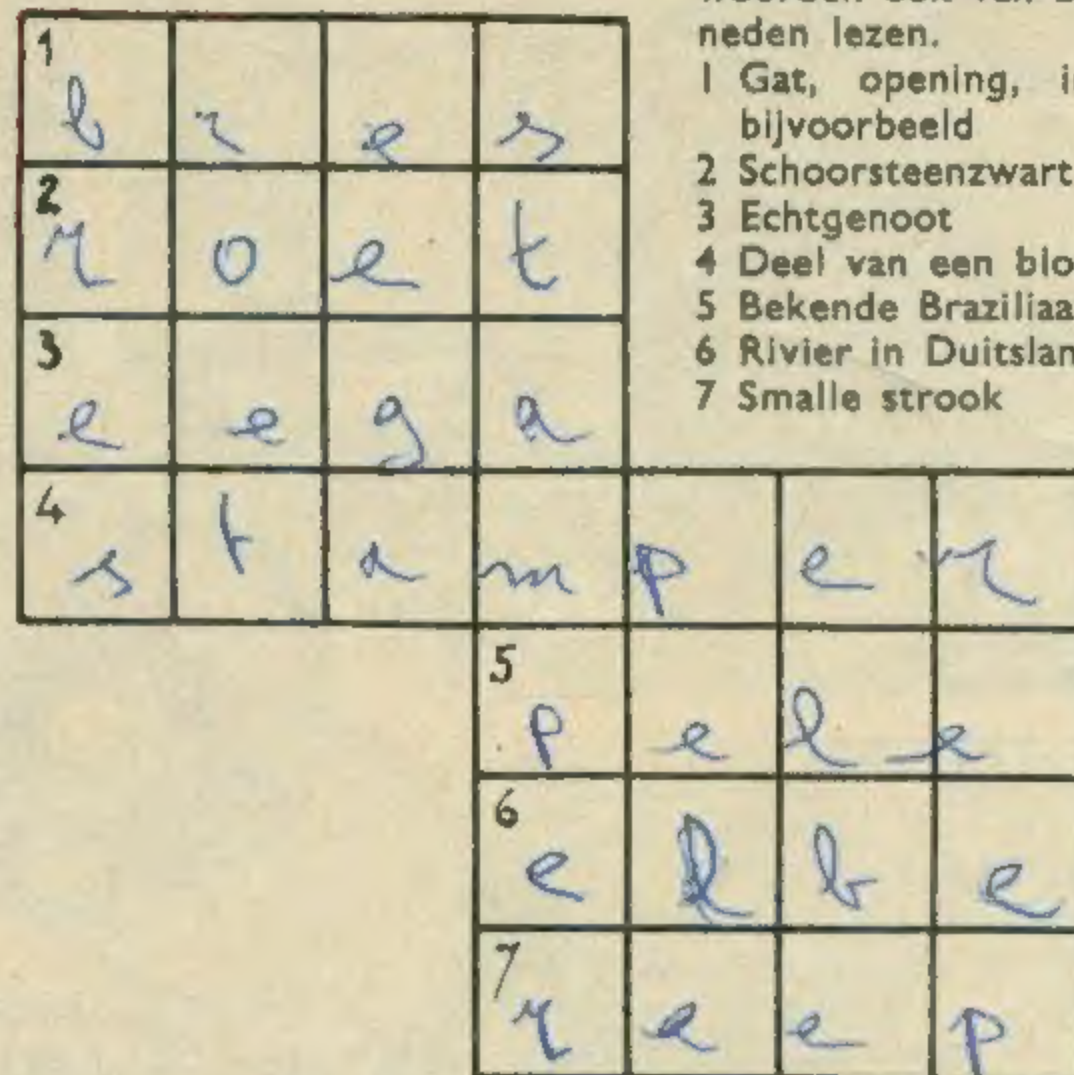 neden lezen.
1 Gat, opening,
bijvoorbeeld
2 Schoorsteenzwart
3 Echtgenoot
4 Deel van een
5 Bekende
6 Rivier in
7 Smalle strook
1 b r e s
2 r o e t
3 e e g a
4 s t a m p e r
5 p e l e
6 e l b e
7 r e e p